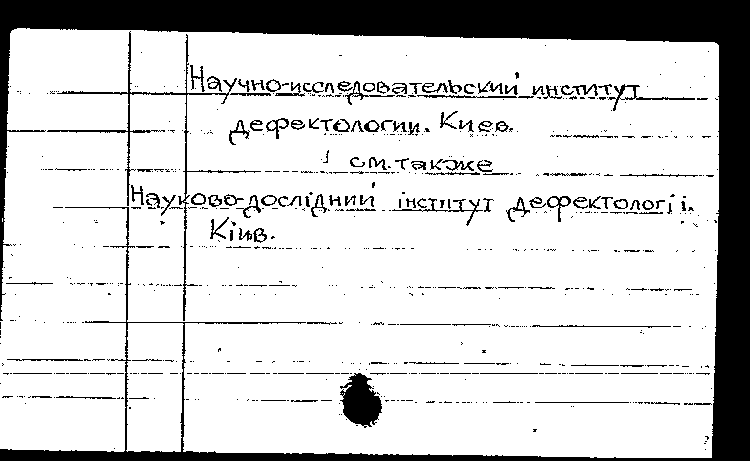 Научно-исследовательский институт
дефектологии. Киев.
см. также
Науково-дослідний інститут дефектологіі.
Кіив.